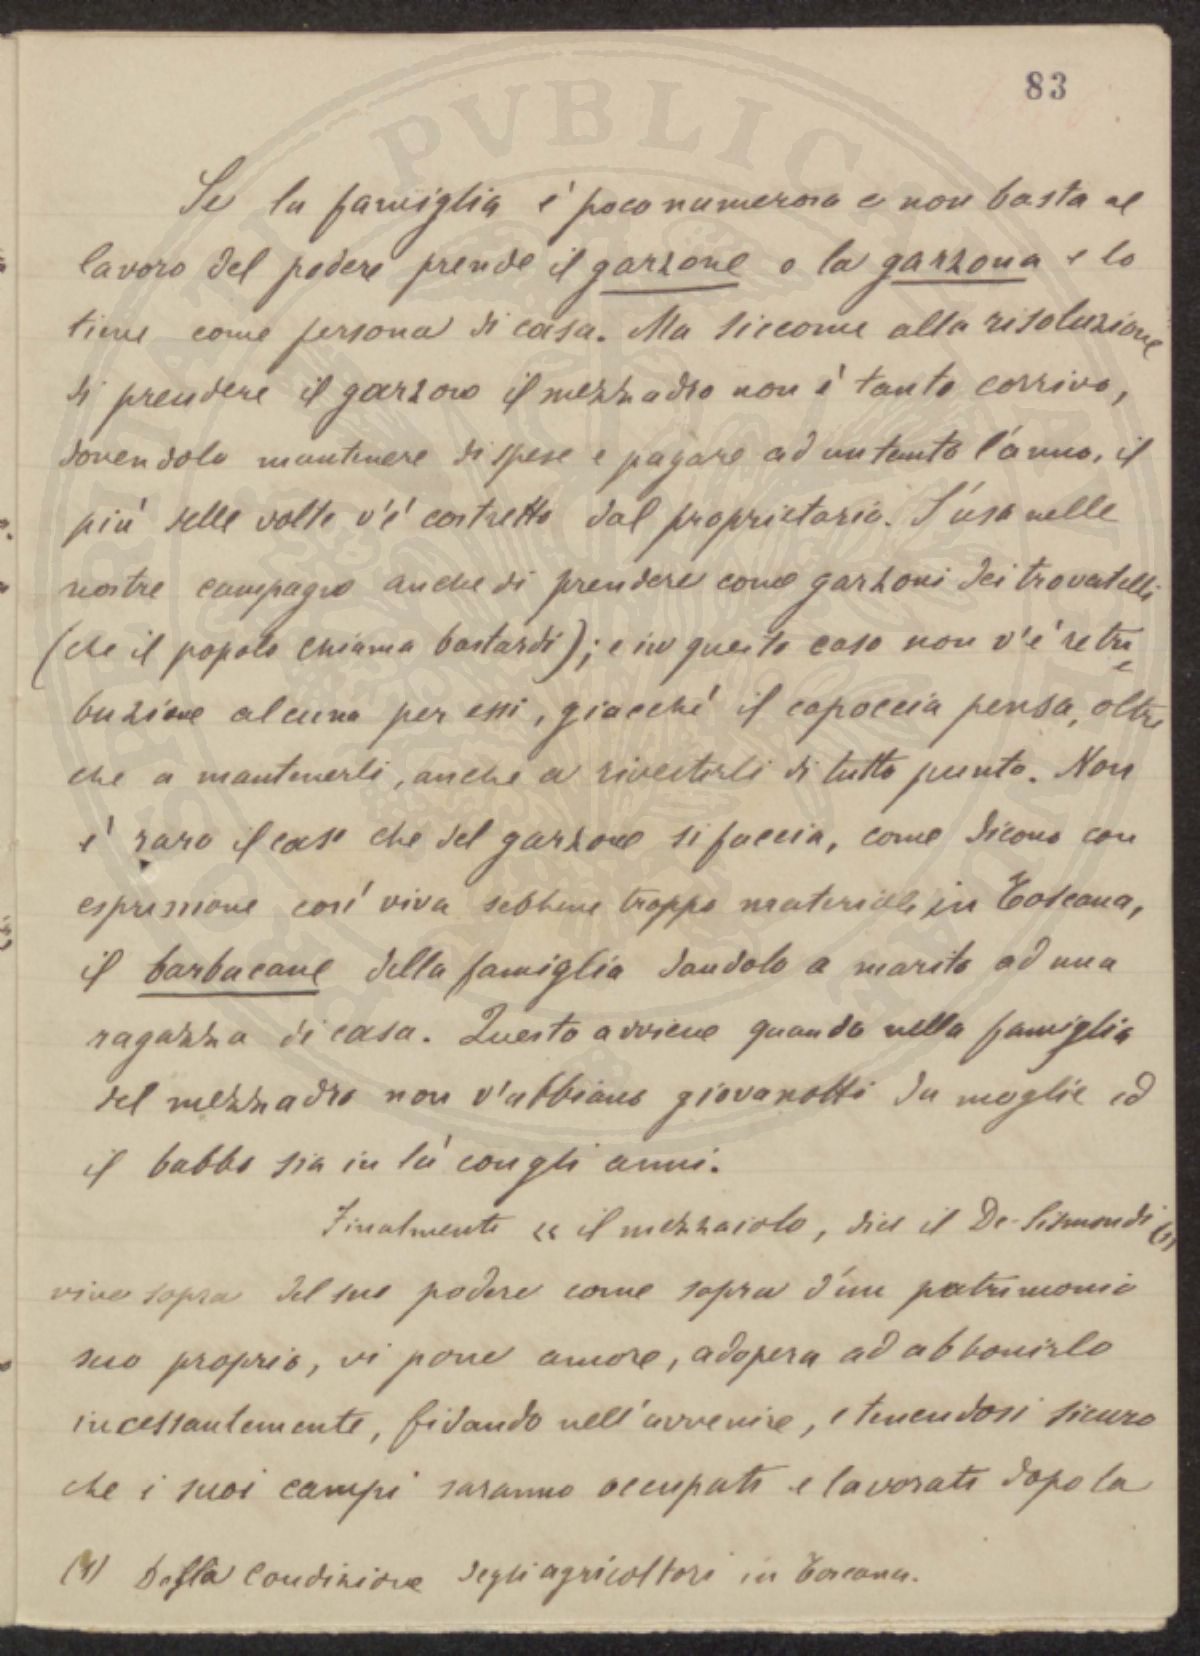 83
Se la famiglia é poco numerosa e non basta al
lavoro del podere prende il garzone o la garzona e lo
tiene come persona di casa. Ma siccome alla risoluzione
di prendere il garzone il mezzadro non é tanto corrivo,
dovendolo mantenere di spese e pagare ad un tanto l'anno, il
piú delle volte v'é costretto dal proprietario. S'usa nelle
nostre campagne anche di prendere come garzoni dei trovatelli
(che il popolo chiama bastardi); e in questo caso non v'é retri=
buzione alcuna per essi, giacché il capoccia pensa, oltre
che a mantenerli, anche a rivestirli di tutto punto. Non
é raro il caso che del garzone si faccia, come dicono con
espressione cosí viva sebbene troppo materiale in Toscana,
il barbacane della famiglia dandolo a marito ad una
ragazza di casa. Questo avviene quando nella famiglia
del mezzadro non v'abbiano giovanotti da moglie ed
il babbo sia in lá congli anni.
Finalmente « il mezzaiolo, dice il De-Sismondi (1)
vive sopra del suo podere come sopra d'un patrimonio
suo proprio, vi pone amore, adopera ad abbonirlo
incessantemente, fidando nell'avvenire, e tenendosi sicuro
che i suoi campi saranno occupati e lavorati dopo la
(1) Della Condizione degli agricoltori in Toscana.